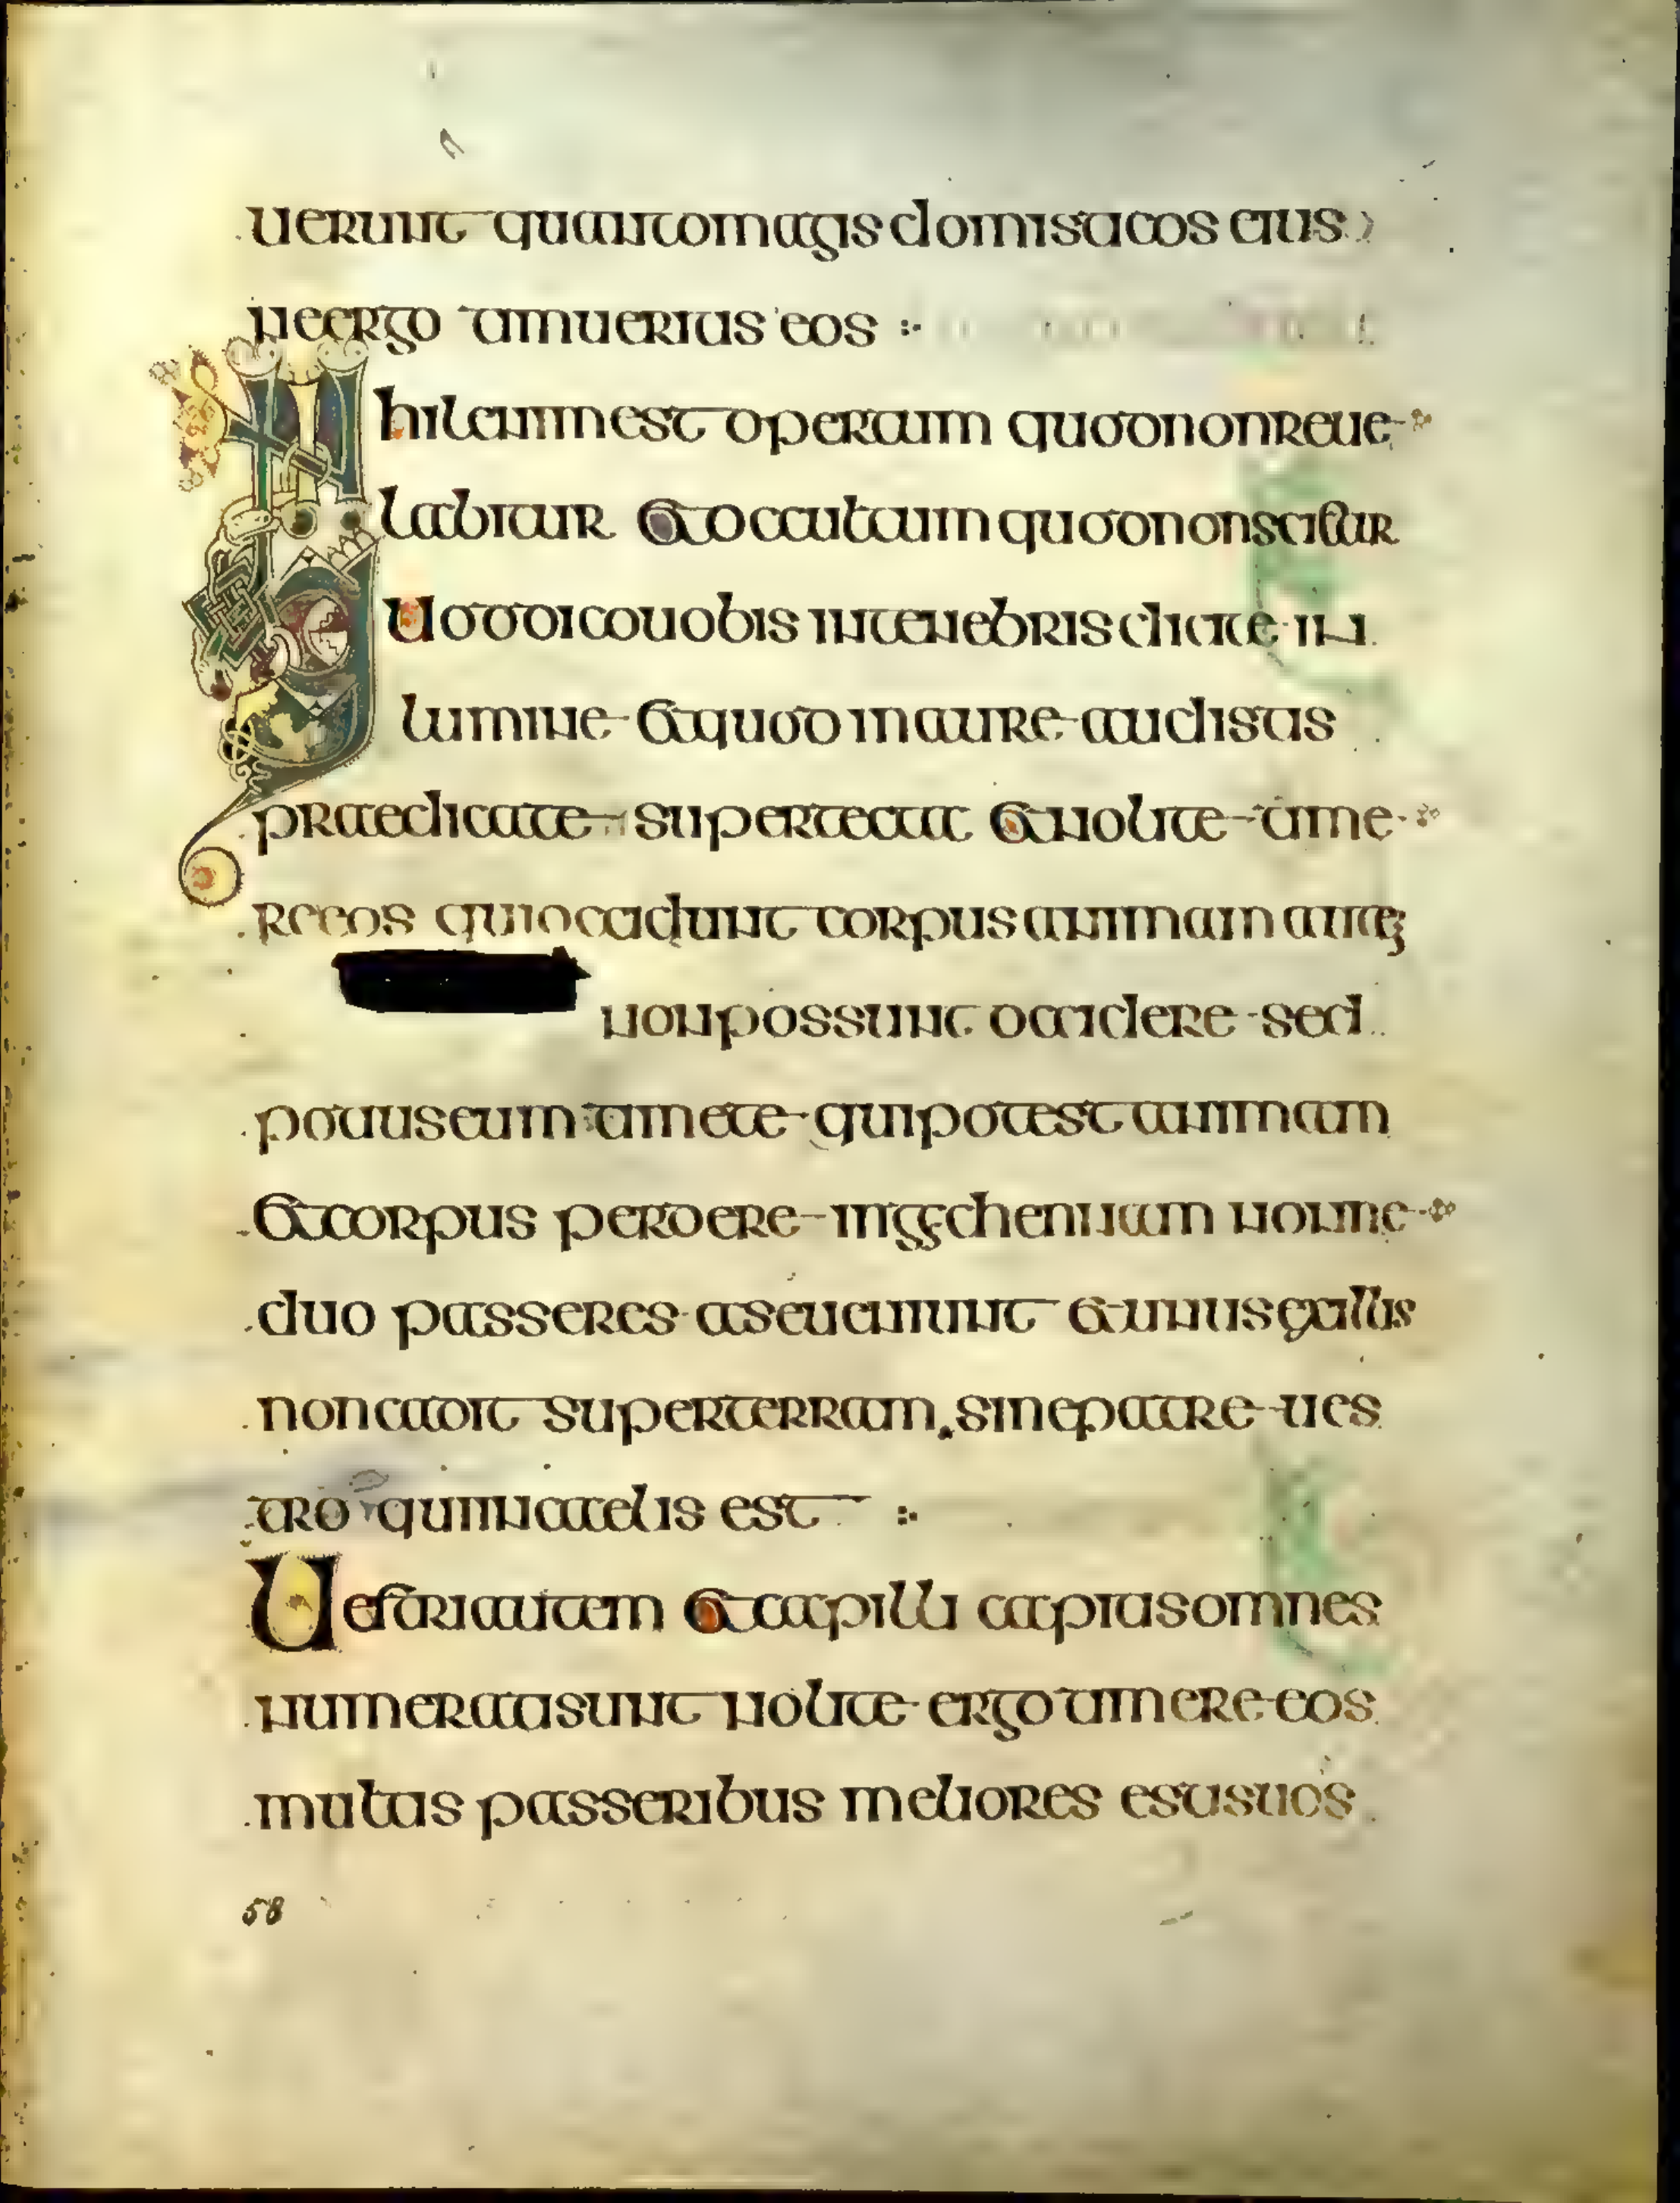 uerunt quantomagis domisticos eius
neergo timueritis eos :·
Nihilenimest opertum quodnonreue
labitur etoccultum quodnonscietur
Quoddicouobis intenebris dicite in
lumine etquod inaure auditis
praedicate supertecta etnolite time
reeos quioccidunt corpus animam autem
nonpossunt occidere sed
potiuseum timete quipotest animam
etcorpus perdere ingechennam nonne
duo passeres aseueniunt etunus exillis
noncadit superterram sinepatre ues
tro quiincaelis est :·
Uestri autem etcapilli capitis omnes
numeratisunt nolite ergo timere eos
multis passeribus meliores estisuos
58